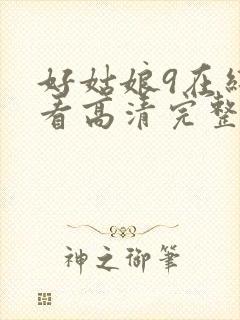 好姑娘9在
看高清完整
神之御筆